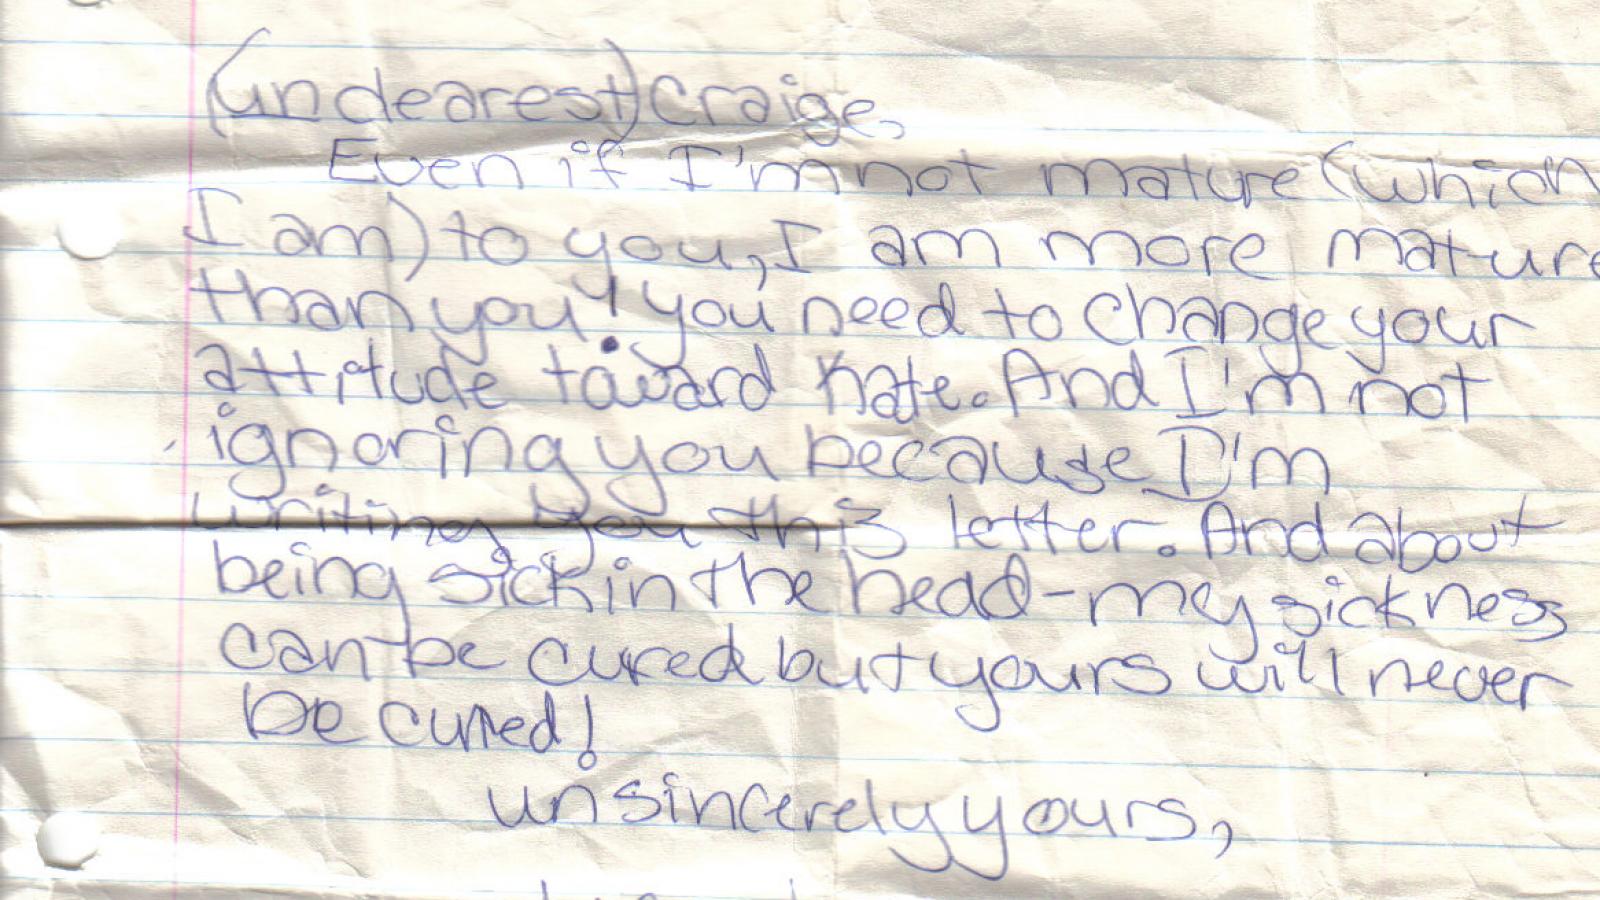 (undearest) Craige,
Even if I'm not mature (which
I am) to you, I am more mature
than you! you need to change your
attitude toward Kate. And I'm not
ignoring you because I'm
writing you this letter. And about
being sick in the head - my sickness
can be cured but yours will never
be cured!
unsincerely yours,